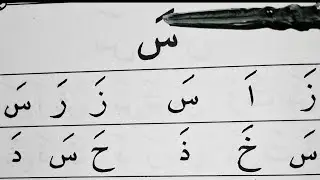 سَ
زَ اَ سَ زَ رَ سَ
سَ خَ ذَ حَ سَ دَ